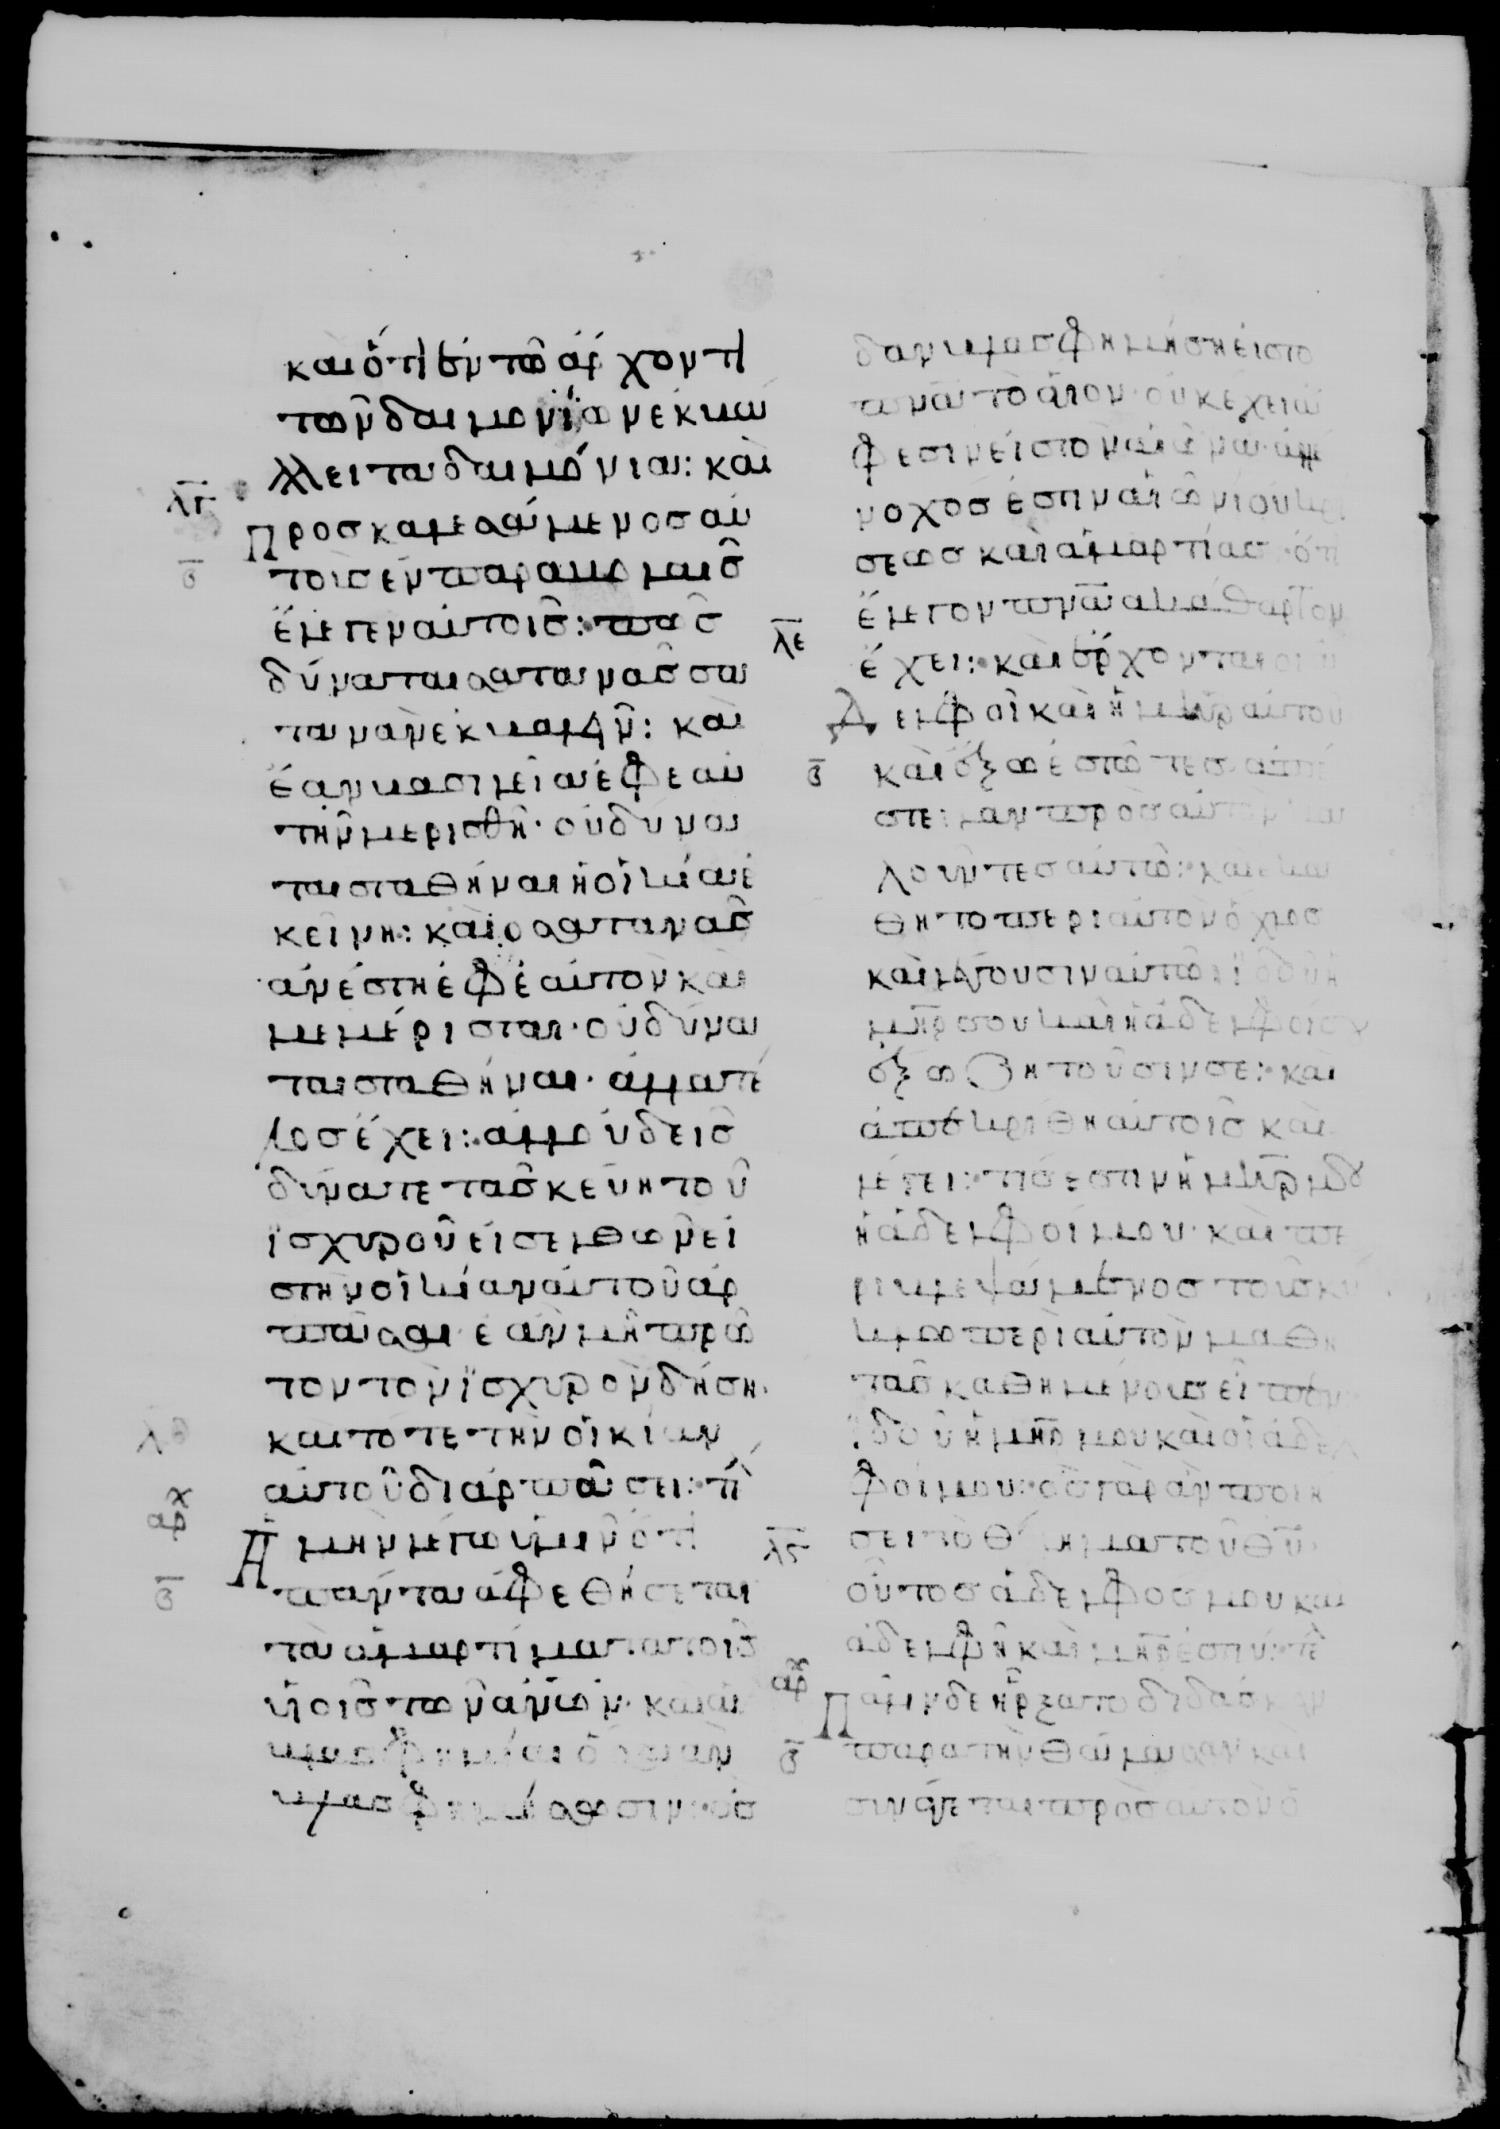 καὶ ὅτι ἐν τῶ ἄρχοντι
τῶν δαιμονίων ἐκβά
λλει τὰ δαιμόνια: καὶ
λγ
Προσκαλεσάμενος αὐ
β
τοὺς ἐν παραβολαῖς
ἔλεγεν αὐτοῖς: πῶς
δύναται σατανᾶς σα
τανᾶν ἐκβαλεῖν: καὶ
ἐὰν βασιλεία ἐφ ἑαυ
τὴν μερισθῆ· οὐ δύνα
ται σταθῆναι ἡ οἰκία ἐ
κείνη: καὶ ὁ σατανᾶς
ἀνέστη ἐφ ἑαυτὸν καὶ
μεμέρισται· οὐ δύνα
ται σταθῆναι· ἀλλα τέ
λος ἔχει: ἀλλ οὐδεὶς
δύναται τὰ σκεύη τοῦ
ἰσχυροῦ εἰσελθὼν εἰ
ς τὴν οἰκίαν αὐτοῦ ἁρ
πάσαι· ἐὰν μὴ πρῶ
τον τὸν ἰσχυρὸν δήση·
καὶ τότε τὴν οἰκίαν
αὐτοῦ διαρπάσει: τέ
αρχ
Ἀμὴν λέγω ὑμῖν ὅτι
β
πάντα ἀφεθήσεται
τὰ ἁμαρτήματα τοῖς
υἱοῖς τῶν ἀνων· καὶ αἱ
βλασφημίαι ὅσα ἂν
βλασφημήσωσιν: ὃς
δ ἂν βλασφημήση εἰς τὸ
πνα τὸ ἅγιον· οὐκ ἔχει ἄ
φεσιν εἰς τὸν αἰῶνα· ἀλλ ἔ
νοχός ἐστιν αἰωνίου κρί
σεως καὶ ἁμαρτίας· ὅτι
ἔλεγον πνα ἀκάθαρτον
λε
ἔχει: καὶ ἔρχονται οἱ
Ἀδελφοὶ καὶ ἡ μηρ αὐτοῦ
β
καὶ ἔξω ἑστῶτες ἀπέ
στειλαν πρὸς αὐτὸν κα
λοῦντες αὐτὸν: καὶ ἐκά
θητο περὶ αὐτὸν ὄχλος
καὶ λέγουσιν αὐτῶ ἰδοὺ ἡ
μηρ σου καὶ οἱ ἀδελφοί σου
ἔξω ζητοῦσίν σε: καὶ
ἀπεκρίθη αὐτοῖς καὶ
λέγει: τίς ἐστιν ἡ μηρ μου
ἢ ἀδελφοί μου· καὶ πε
ριβλεψάμενος τοὺς κύ
κλω περὶ αὐτὸν μαθη
τὰς καθημένους εἶπεν
ἰδοὺ ἡ μηρ μου καὶ οἱ ἀδελ
φοί μου: ὃς γὰρ ἂν ποιή
λς
σει τὸ θέλημα τοῦ θυ
οὗτος ἀδελφός μου καὶ
ἀδελφὴ καὶ μηρ ἐστίν: τέ
αρχ
Πάλιν δὲ ἤρξατο διδάσκειν
β
παρὰ τὴν θάλασσαν καὶ
συνάγεται πρὸς αὐτὸν ὄ